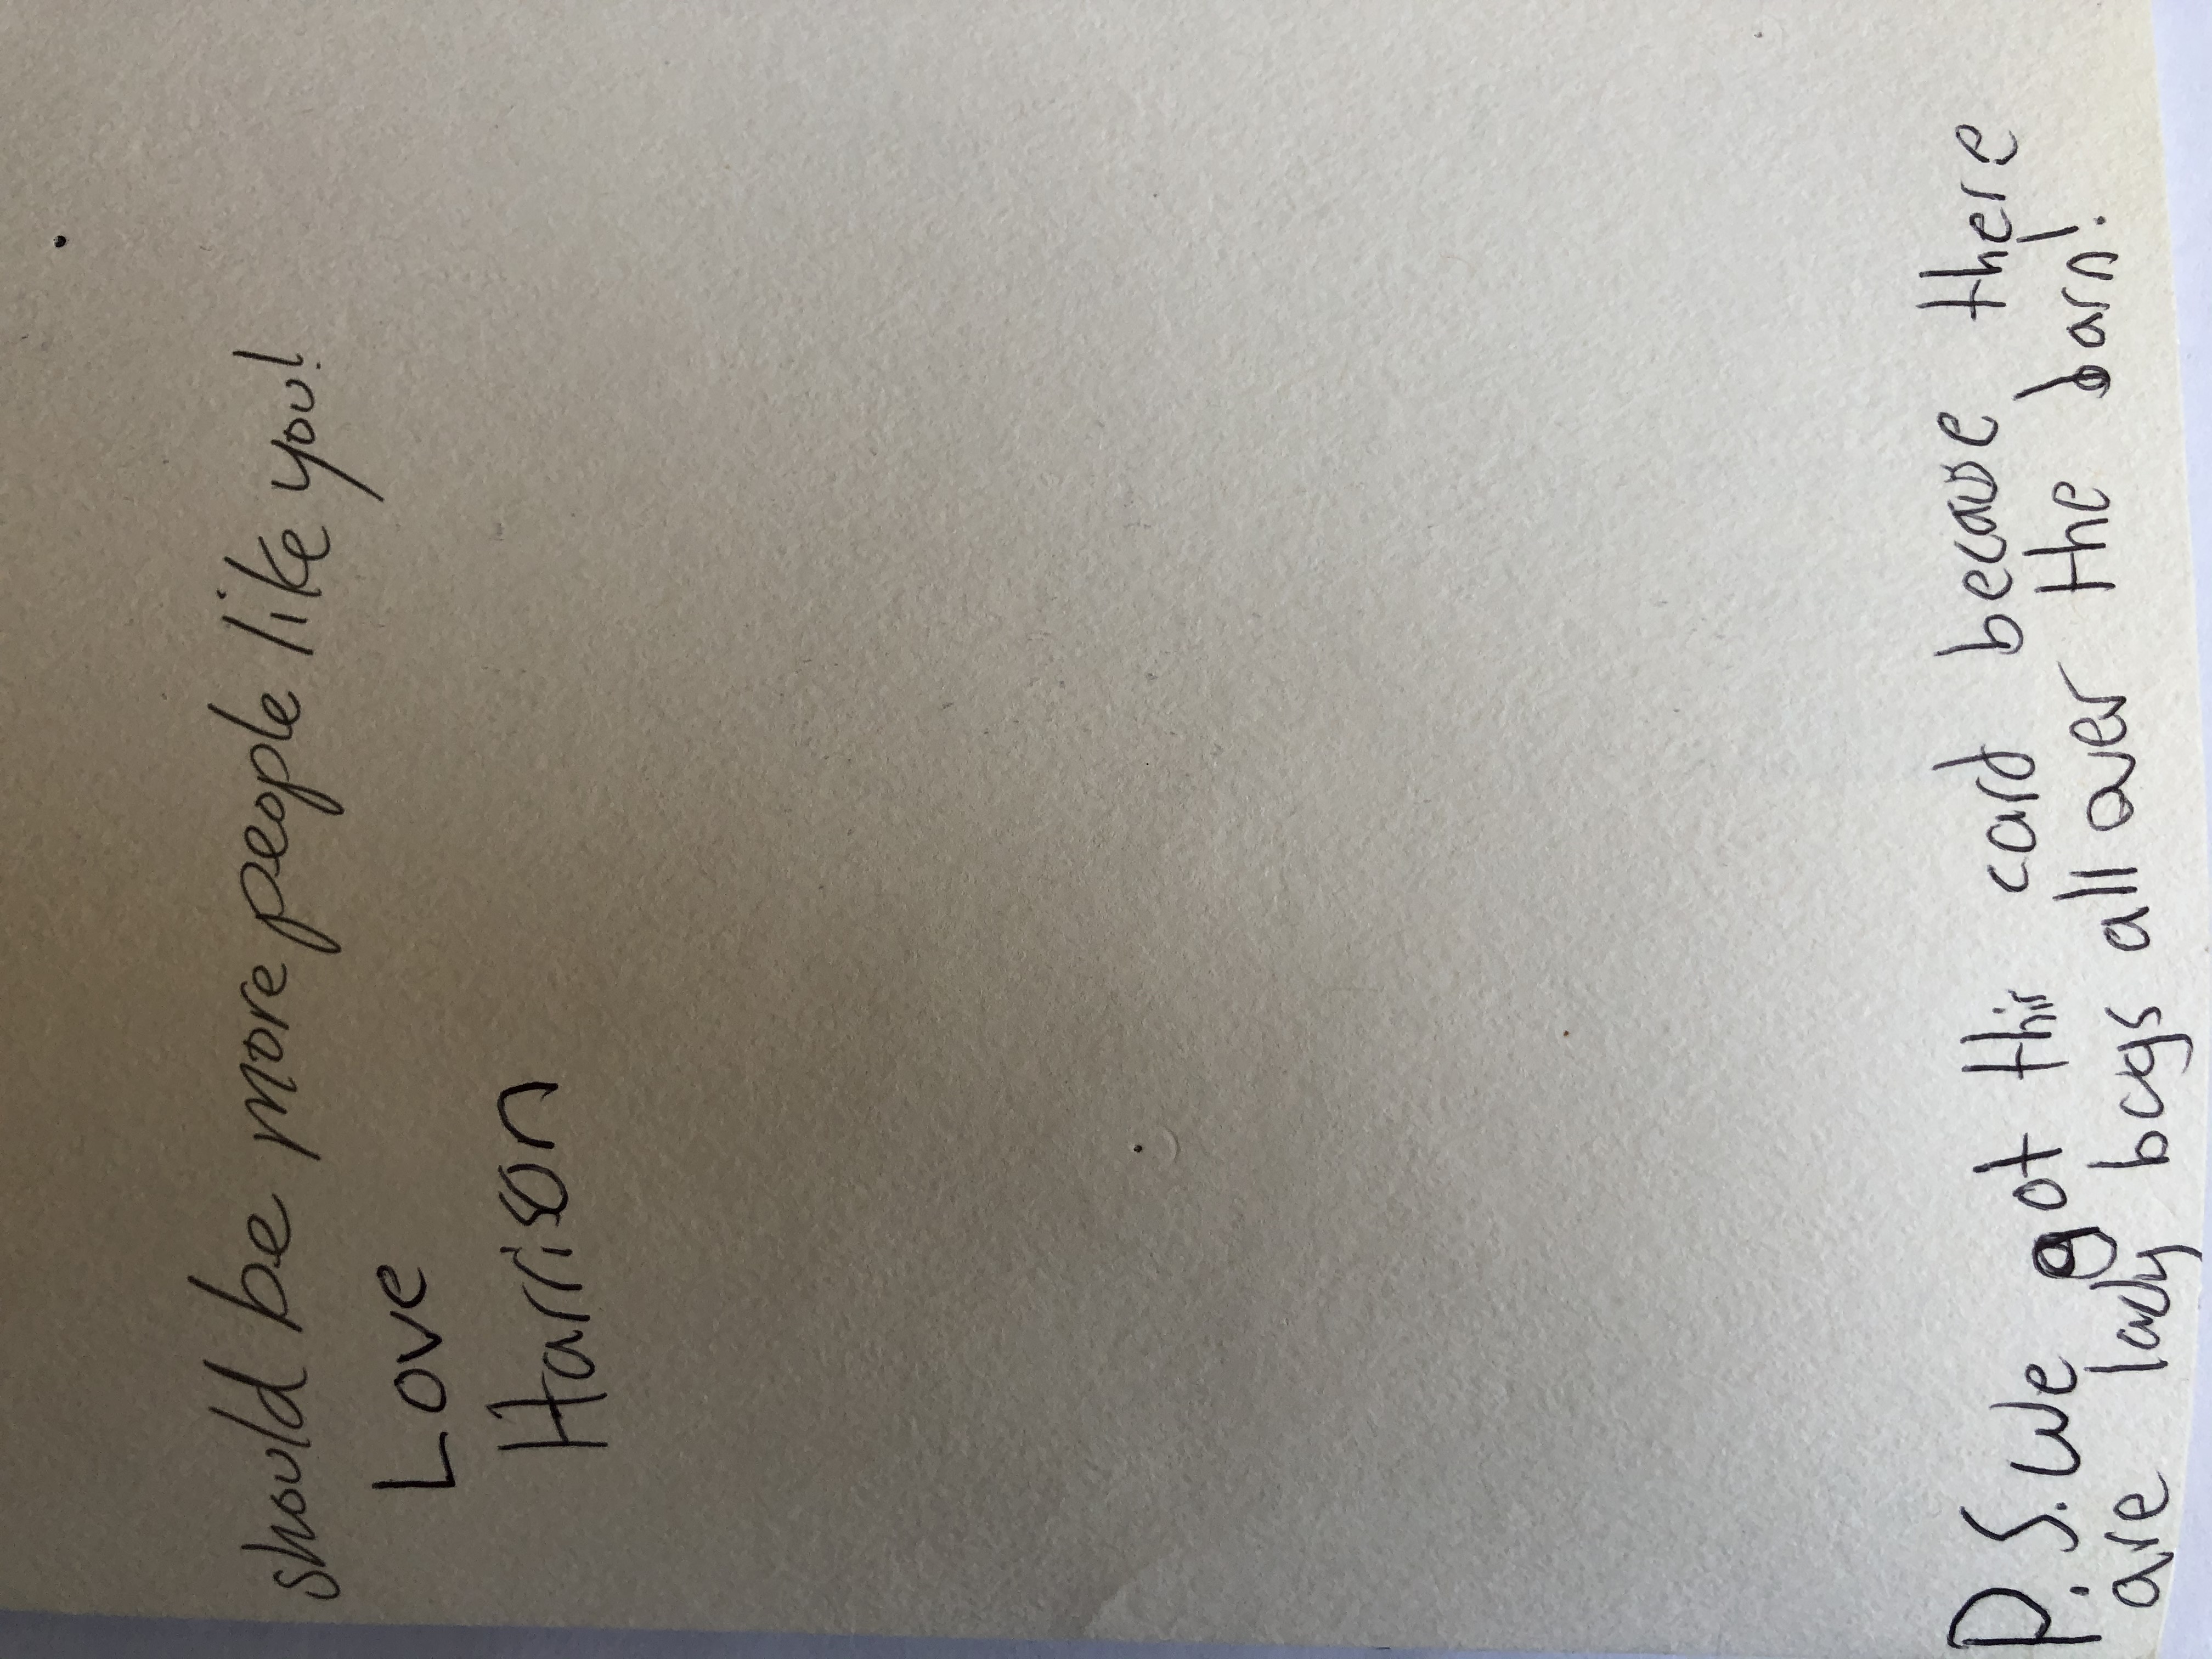 should be more people like you!
Love
Harrison
P.S. We got this card because there
are lady bugs all over the barn!